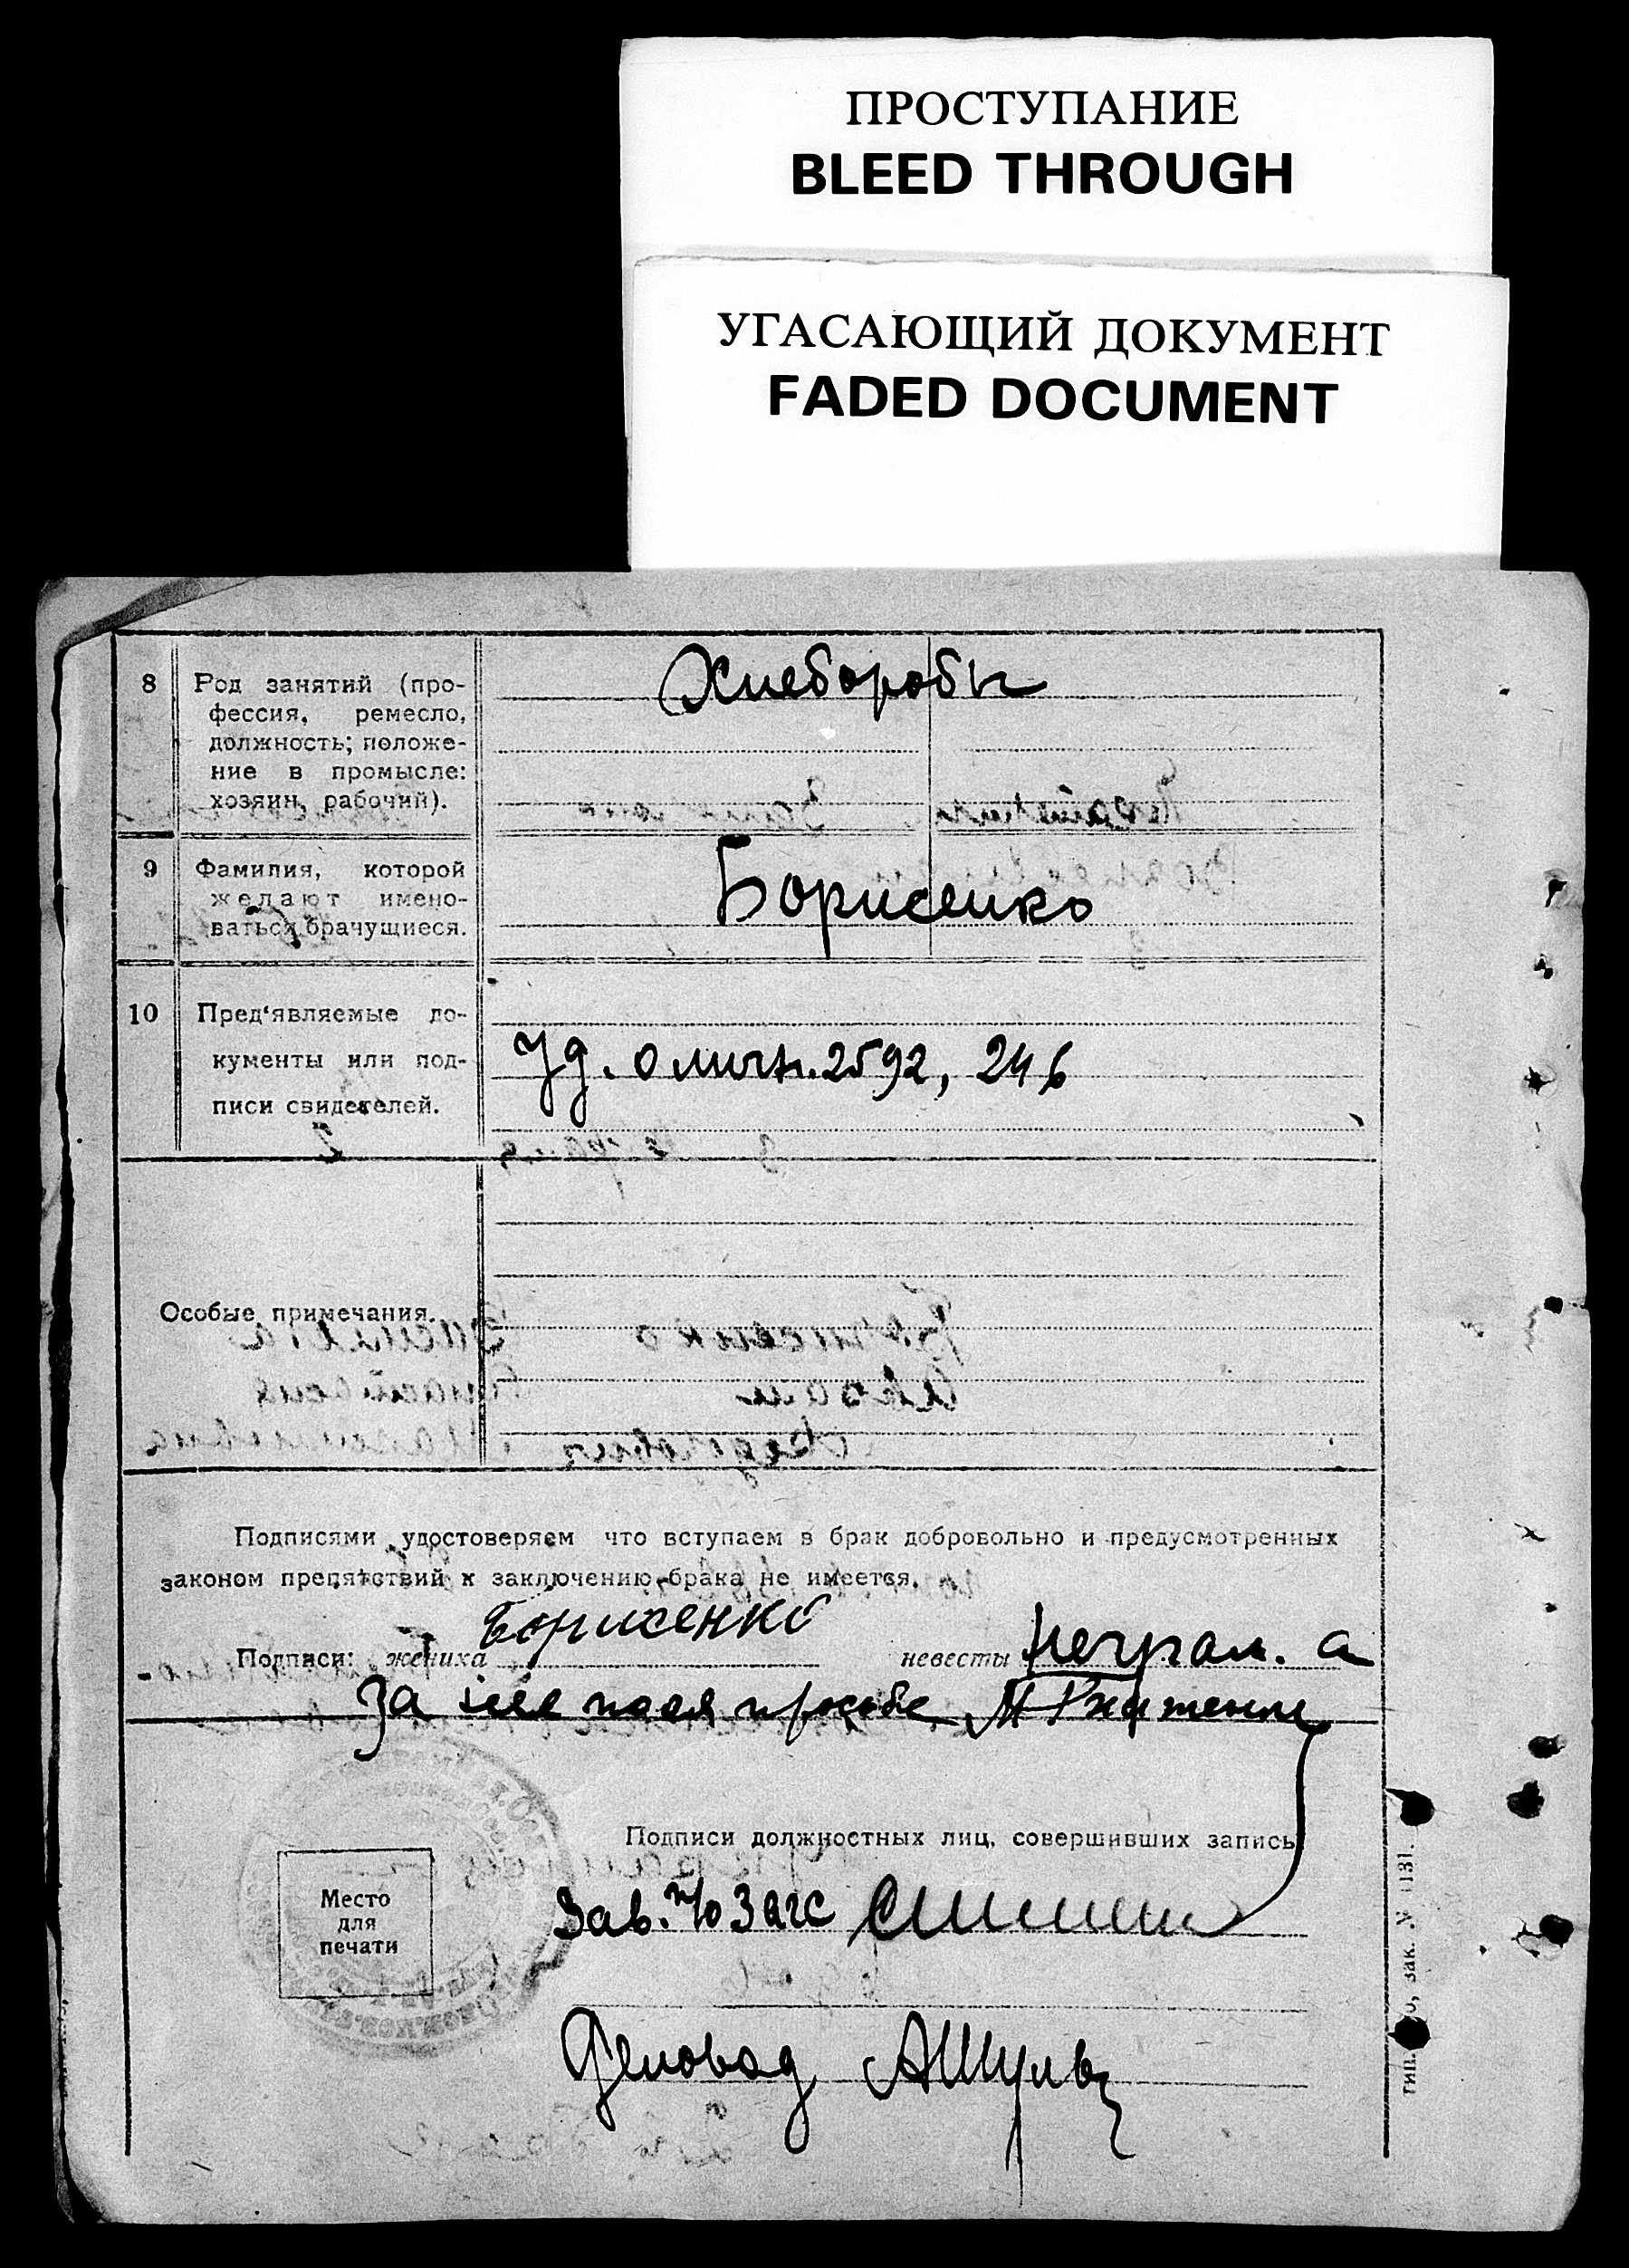 ПРОСТУПАНИЕ
BLEED THROUGH
УГАСАЮЩИЙ ДОКУМЕНТ
FADED DOCUMENT
8 Род занятий (про-
фессия, ремесло,
должность; положе-
ние в промысле:
хозяин, рабочий).
Хлеборобы
9 Фамилия, которой
желают имено-
ваться брачущиеся.
Борисенко
10 Пред‘являемые до-
кументы или под-
писи свидетелей.
Уд. о личн. 2592, 246
Особые примечания.
Подписями удостоверяем что вступаем в брак добровольно и предусмотренных
законом препятствий к заключению брака не имеется.
Подписи: жениха Борисенко невесты неграм. а
За нее по ея просьбе
Подписи должностных лиц, совершивших запись
Место
для
печати
Зав. п/о Загс
Деловод
зак. № 1131.